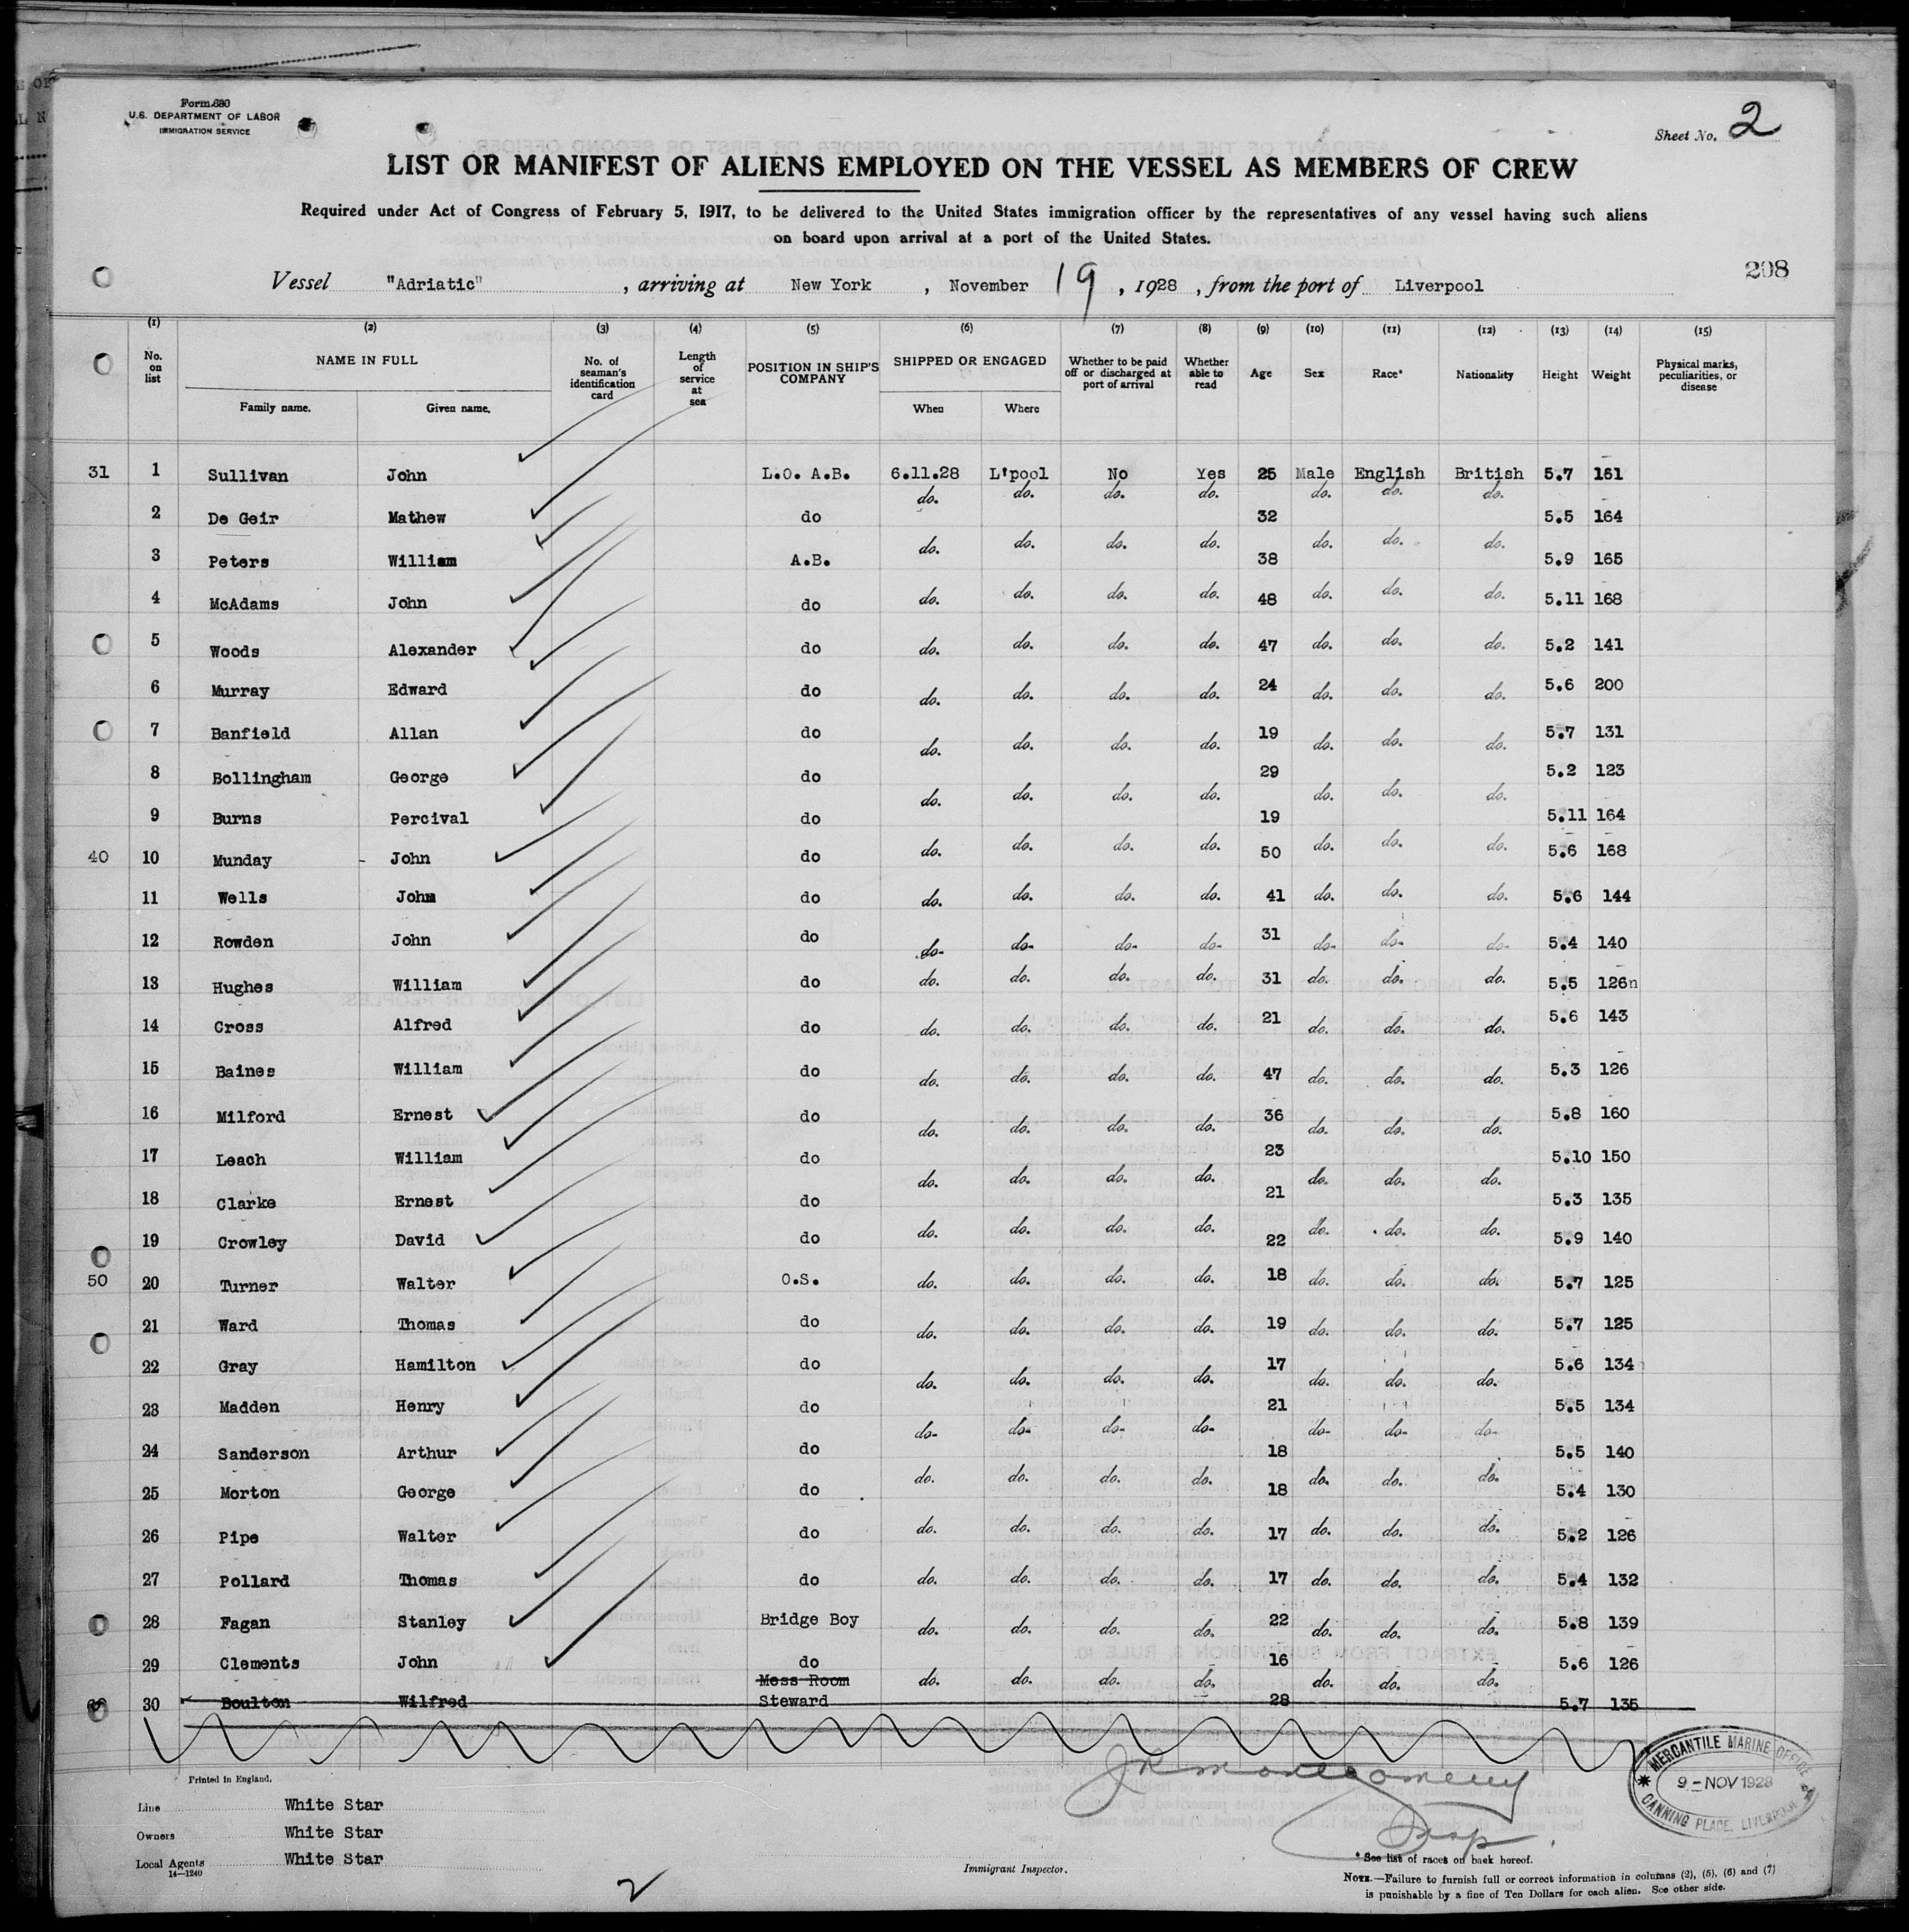 Form 680
U.S. DEPARTMENT OF LABOR
IMMIGRATION SERVICE
Sheet No. 2
LIST OR MANIFEST OF ALIENS EMPLOYED ON THE VESSEL AS MEMBERS OF CREW
Required under Act of Congress of February 5, 1917, to be delivered to the United States immigration officer by the representatives of any vessel having such aliens
on board upon arrival at a port of the United States.
208
Vessel "Adriatic" , arriving at New York , November 19 , 1928 , from the port of Liverpool
(1) (2) (3) (4) (5) (6) (7) (8) (9) (10) (11) (12) (13) (14) (15)
No. on list NAME IN FULL Family name. Given name. No. of seaman's identification card Length of service at sea POSITION IN SHIP'S COMPANY SHIPPED OR ENGAGED When Where Whether to be paid off or discharged at port of arrival Whether able to read Age Sex Race* Nationality Height Weight Physical marks, peculiarities, or disease
31 1 Sullivan John L.O. A.B. 6.11.28 L'pool No Yes 25 Male English British 5.7 151
2 De Geir Mathew do do. do. do. do. 32 do. do. do. 5.5 164
3 Peters William A.B. do. do. do. do. 38 do. do. do. 5.9 165
4 McAdams John do do. do. do. do. 48 do. do. do. 5.11 168
5 Woods Alexander do do. do. do. do. 47 do. do. do. 5.2 141
6 Murray Edward do do. do. do. do. 24 do. do. do. 5.6 200
7 Banfield Allan do do. do. do. do. 19 do. do. do. 5.7 131
8 Bollingham George do do. do. do. do. 29 do. do. do. 5.2 123
9 Burns Percival do 19 5.11 164
40 10 Munday - John do do. do. do. do. 50 do. do. do. 5.6 168
11 Wells John do do. do. do. do. 41 do. do. do. 5.6 144
12 Rowden John do do- do- do- do- 31 do- do- do- 5.4 140
13 Hughes William do do. do. do. do. 31 do. do. do. 5.5 126n
14 Cross Alfred do do. do. do. do. 21 do. do. do. 5.6 143
15 Baines William do do. do. do. do. 47 do. do. do. 5.3 126
16 Milford Ernest do do. do. do. do. 36 do. do. do. 5.8 160
17 Leach William do do. do. do. do. 23 do. do. do. 5.10 150
18 Clarke Ernest do 21 5.3 135
19 Crowley David do do. do. do. do. 22 do. do. do. 5.9 140
50 20 Turner Walter O.S. do. do. do. do. 18 do. do. do. 5.7 125
21 Ward Thomas do do. do. do. do. 19 do. do. do. 5.7 125
22 Gray Hamilton do do. do. do. do. 17 do. do. do. 5.6 134
23 Madden Henry do do- do- do- do- 21 do- do- do- 5.5 134
24 Sanderson Arthur do do. do. do. do. 18 do. do. do. 5.5 140
25 Morton George do 18 5.4 130
26 Pipe Walter do do. do. do. do. 17 do. do. do. 5.2 126
27 Pollard Thomas do do. do. do. do. 17 do. do. do. 5.4 132
28 Fagan Stanley Bridge Boy do. do. do. do. 22 do. do. do. 5.8 139
29 Clements John do do. do. do. do. 16 do. do. do. 5.6 126
30 Boulton Wilfred Mess Room Steward 28 5.7 135
Printed in England.
JR Montgomery
Insp.
MERCANTILE MARINE OFFICE
9 - NOV 1928
CANNING PLACE, LIVERPOOL
Line White Star
Owners White Star
Local Agents White Star
14—1240
2
Immigrant Inspector.
* See list of races on back hereof.
NOTE.—Failure to furnish full or correct information in columns (2), (5), (6) and (7)
is punishable by a fine of Ten Dollars for each alien. See other side.